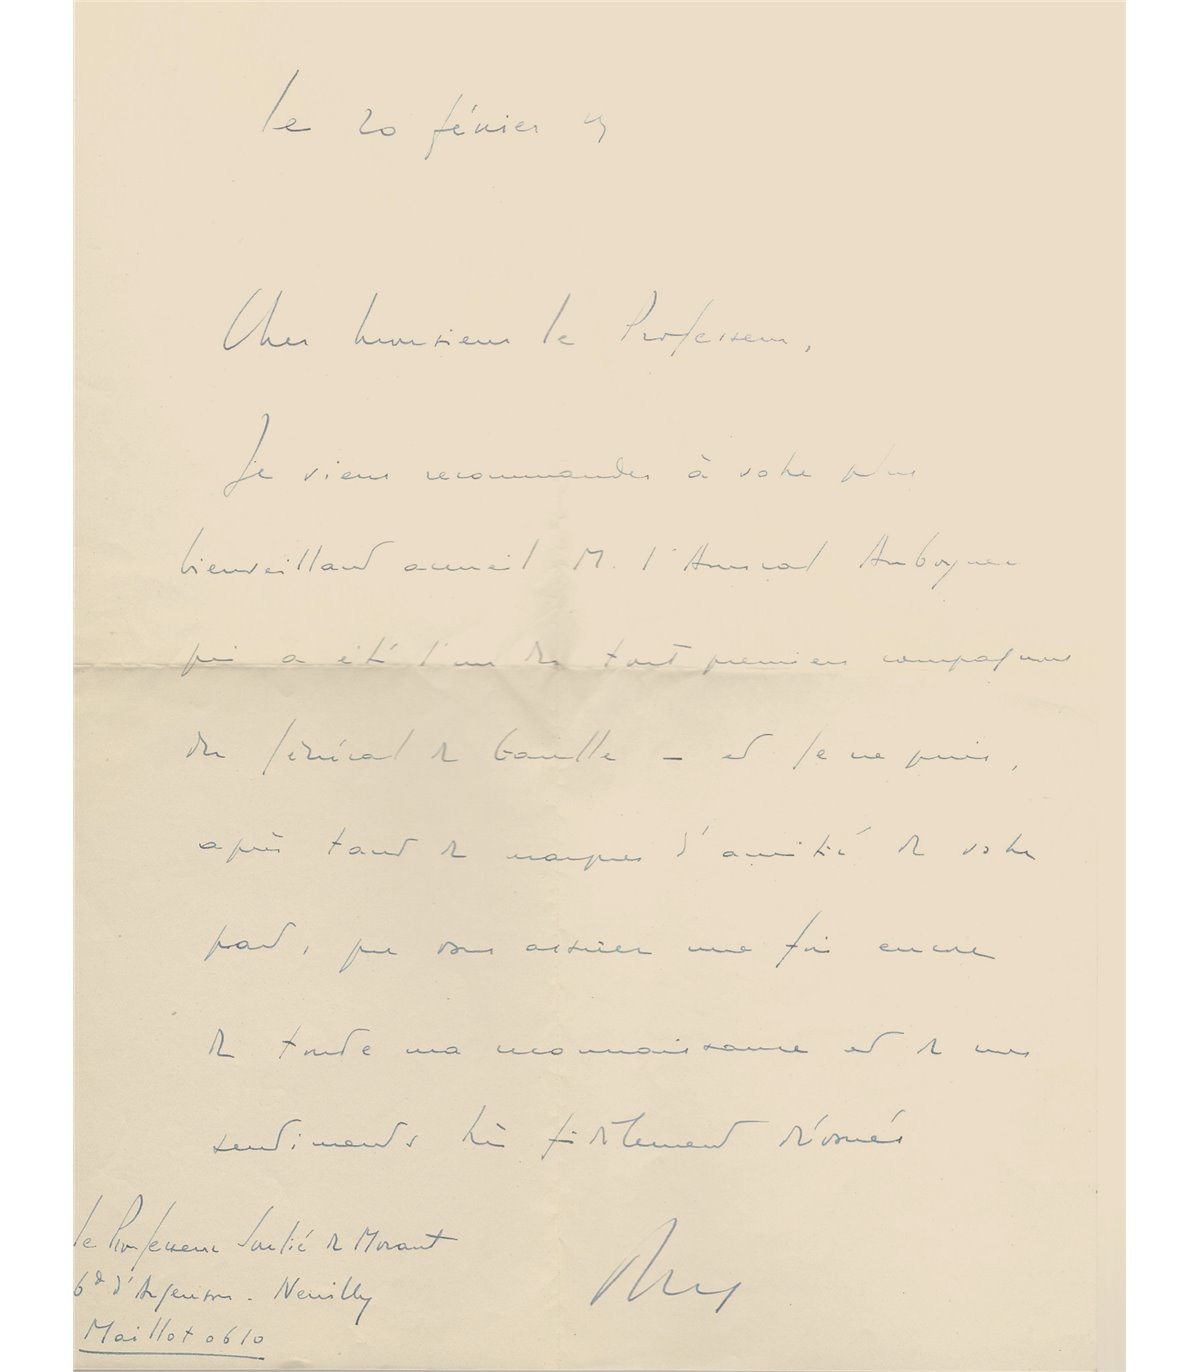 le 20 février
Cher Monsieur le Professeur,
Je viens recommander à votre plus
bienveillant accueil M. l'Amiral Auboyneau
qui a été l'un des tout premiers compagnons
du Général de Gaulle – et je ne puis,
après tant de marques d'amitié de votre
part, que vous assurer une fois encore
de toute ma reconnaissance et de mes
sentiments très fidèlement dévoués
le Professeur Soulié de Morant
6 Bd d'Argenson - Neuilly
Maillot 0610